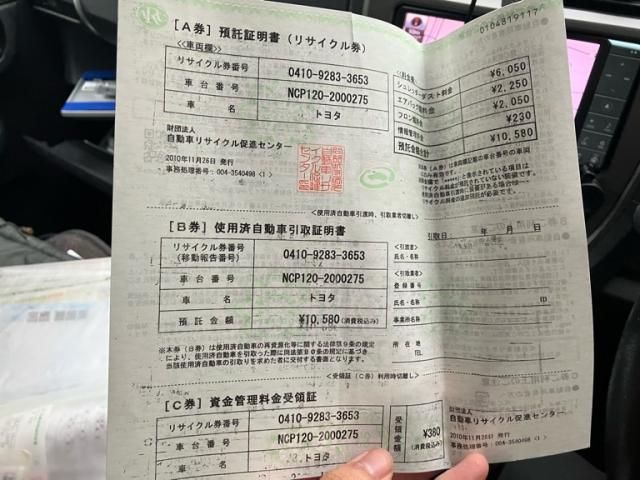 0104819117
[A券] 預託証明書(リサイクル券)
<車両欄>
リサイクル券番号 0410-9283-3653
車台番号 NCP120-2000275
車名 トヨタ
<料金欄>
シュレッダーダスト料金 ¥6,050
エアバッグ類料金 ¥2,250
フロン類料金 ¥2,050
情報管理料金 ¥230
預託金額合計 ¥10,580
財団法人
自動車リサイクル促進センター
2010年11月26日 発行
事務処理番号:004-3540498 〈1〉
<使用済自動車引渡時、引取業者切離し>
[B券] 使用済自動車引取証明書
引取日: 年 月 日
リサイクル券番号
(移動報告番号) 0410-9283-3653
車台番号 NCP120-2000275
車名 トヨタ
預託金額 ¥10,580(消費税込み)
<引渡者>
氏名・名称
<引取業者>
登録番号
氏名・名称
事業所名称
所在地
TEL
※本券(B券)は使用済自動車の再資源化等に関する法律第9条の規定
により、使用済自動車を引取った際に同法第80条の規定に基づき
当該使用済自動車の引取りを求めた者に交付する書面となります。
<受領証(C券)利用時切離し>
[C券] 資金管理料金受領証
リサイクル券番号 0410-9283-3653
車台番号 NCP120-2000275
車名 トヨタ
受領金額 ¥380
(消費税込み)
財団法人
自動車リサイクル促進センター
2010年11月26日 発行
事務処理番号:004-3540498 〈1〉